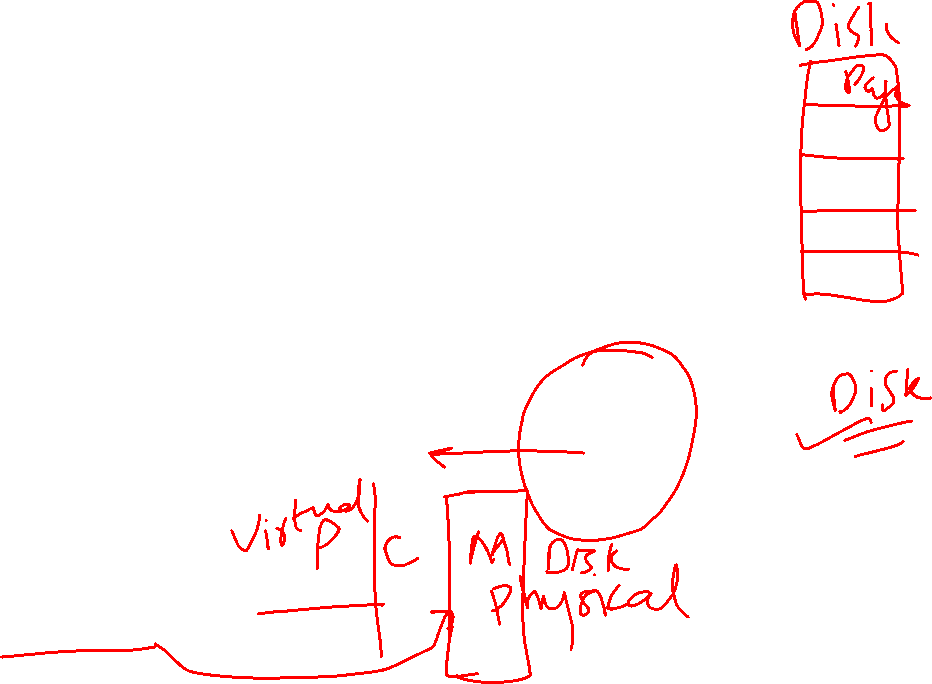 Disk
Page
Disk
Virtual
P C M Disk
Physical